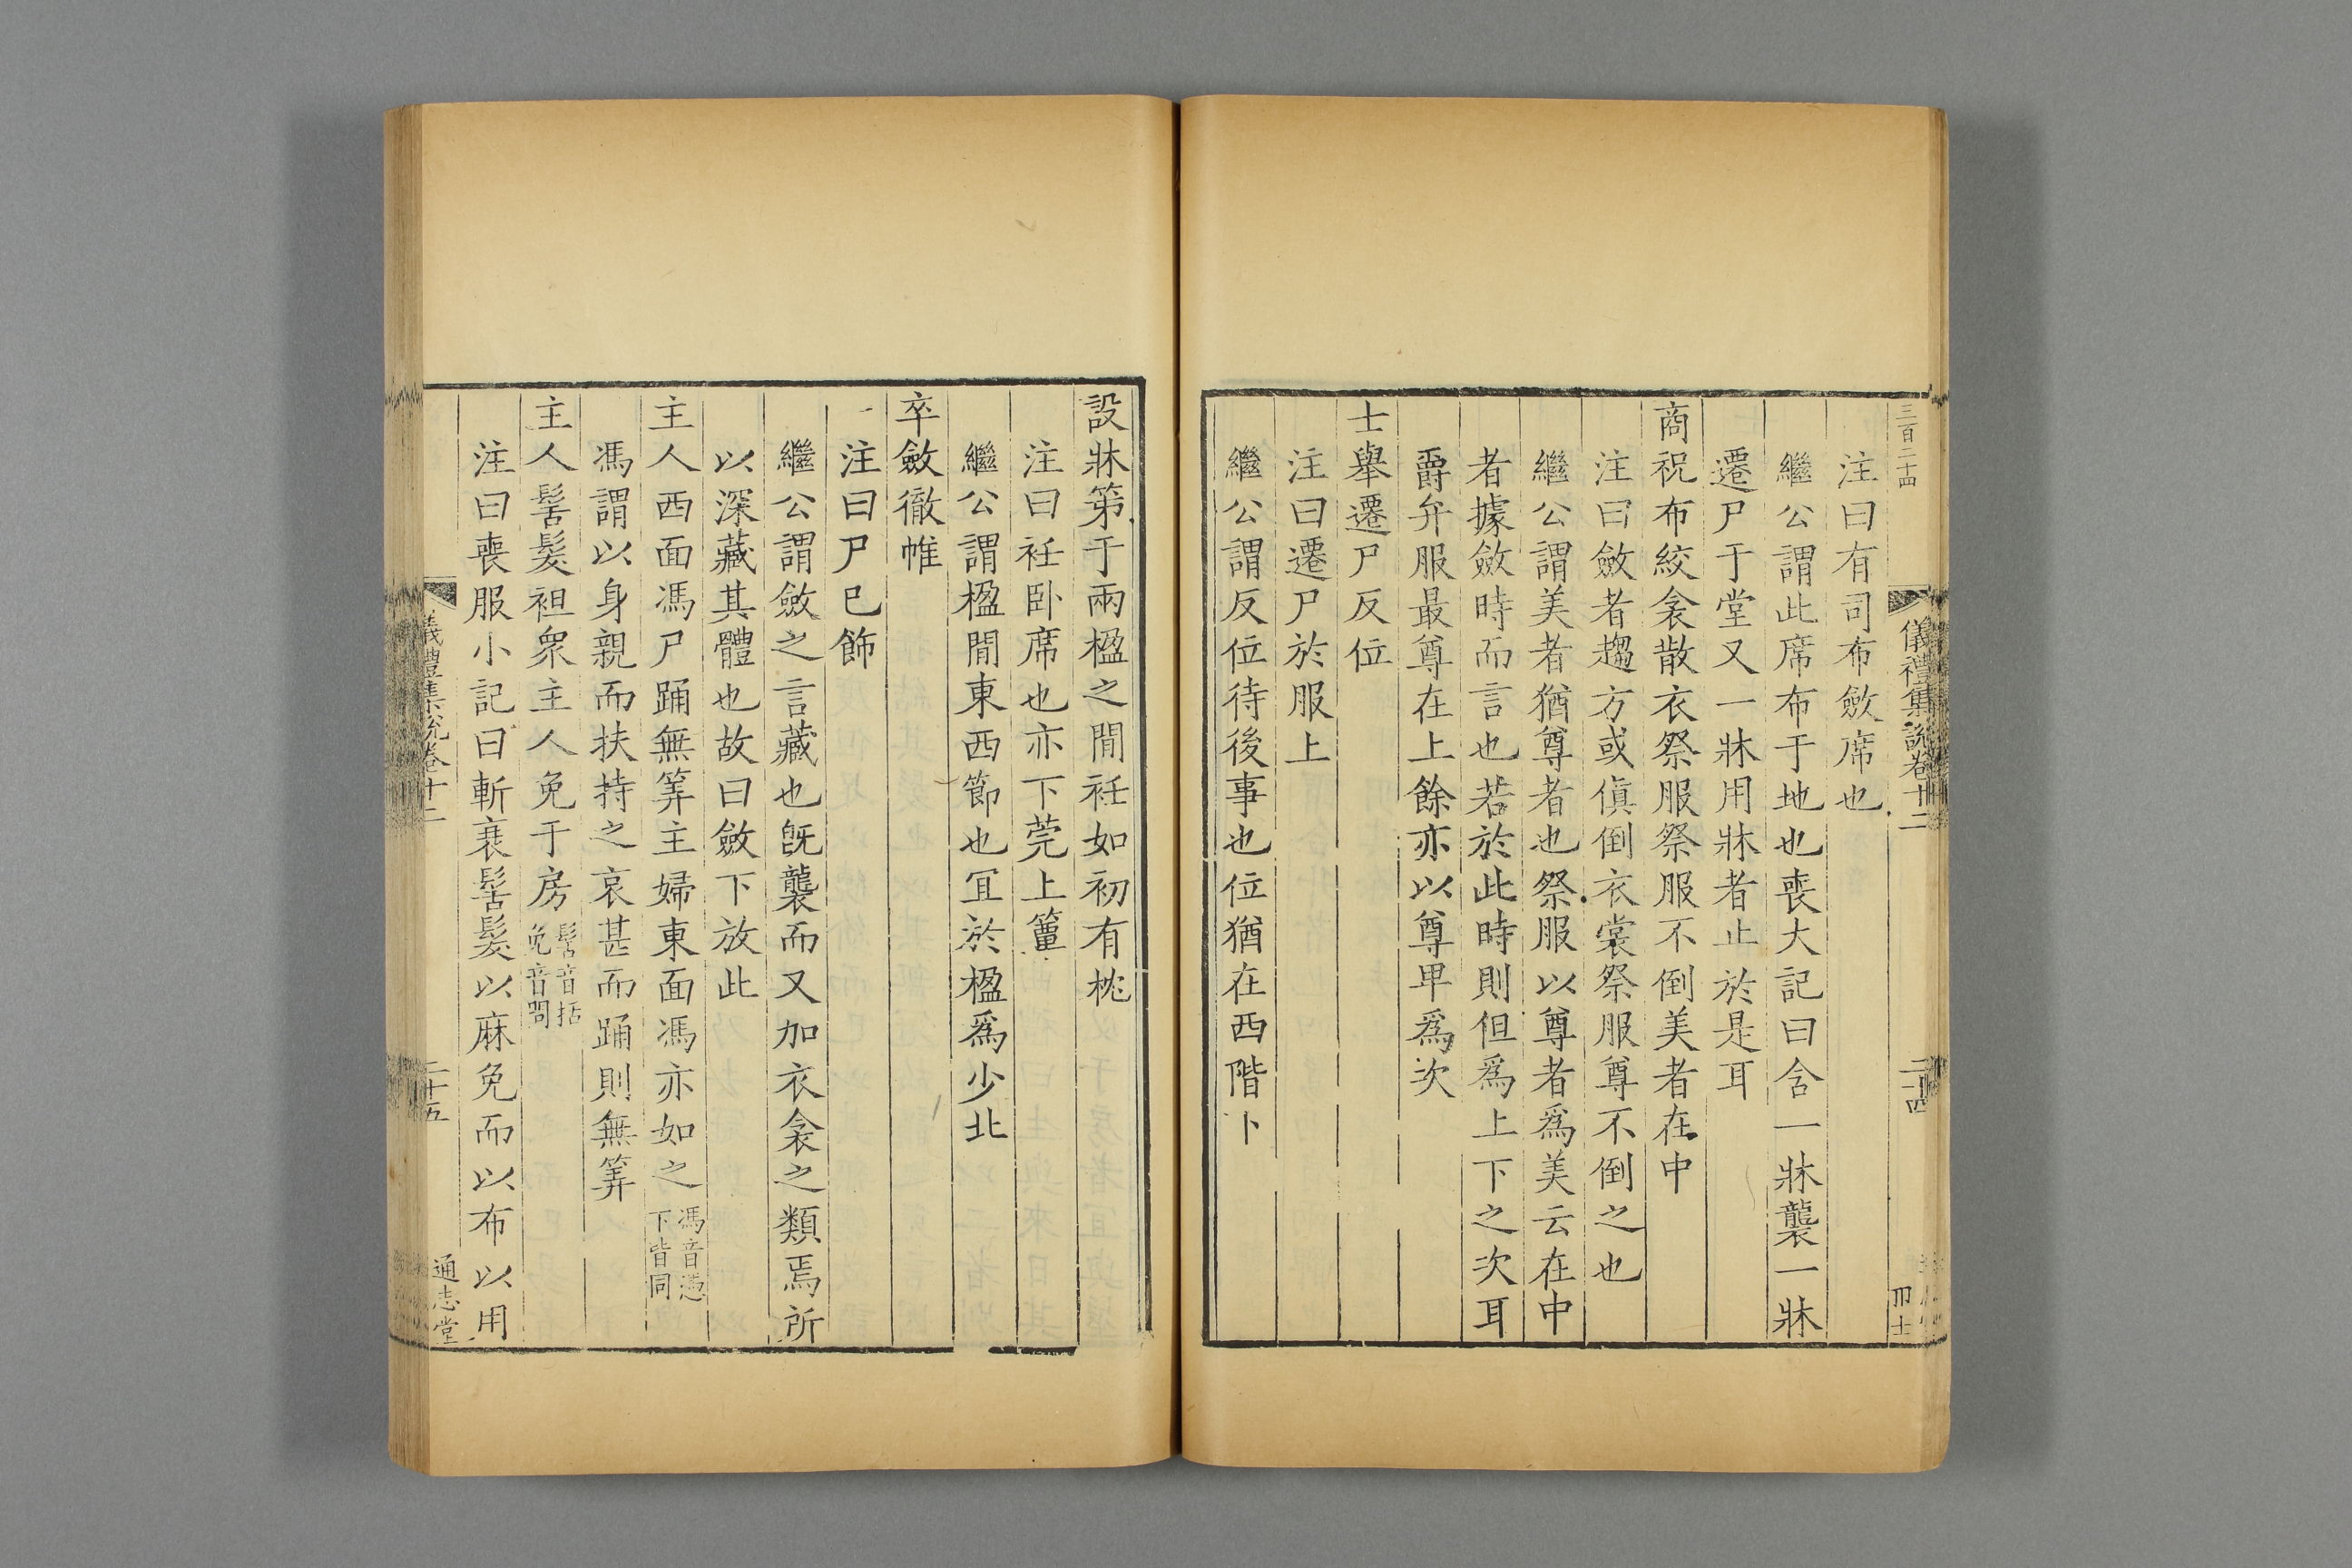 三百二十四
儀禮集說卷十二
二十四
注曰有司布斂席也
繼公謂此席布于地也喪大記曰含一牀襲一牀
遷尸于堂又一牀用牀者止於是耳
商祝布絞衾散衣祭服祭服不倒美者在中
注曰斂者趨方或傎倒衣裳祭服尊不倒之也
繼公謂美者猶尊者也祭服以尊者爲美云在中
者據斂時而言也若於此時則但爲上下之次耳
爵弁服最尊在上餘亦以尊卑爲次
士舉遷尸反位
注曰遷尸於服上
繼公謂反位待後事也位猶在西階下
設牀第于兩楹之閒衽如初有枕
注曰衽卧席也亦下莞上簟
繼公謂楹閒東西節也冝於楹爲少北
卒斂徹帷
注曰尸已飾
繼公謂斂之言藏也旣襲而又加衣衾之類焉所
以深藏其體也故曰斂下放此
主人西面馮尸踊無筭主婦東面馮亦如之馮音憑下皆同
馮謂以身親而扶持之哀甚而踊則無筭
主人髺髮袒眾主人免于房髺音括免音問
注曰喪服小記曰斬衰髺髮以麻免而以布以用
儀禮集說卷十二
二十五
通志堂